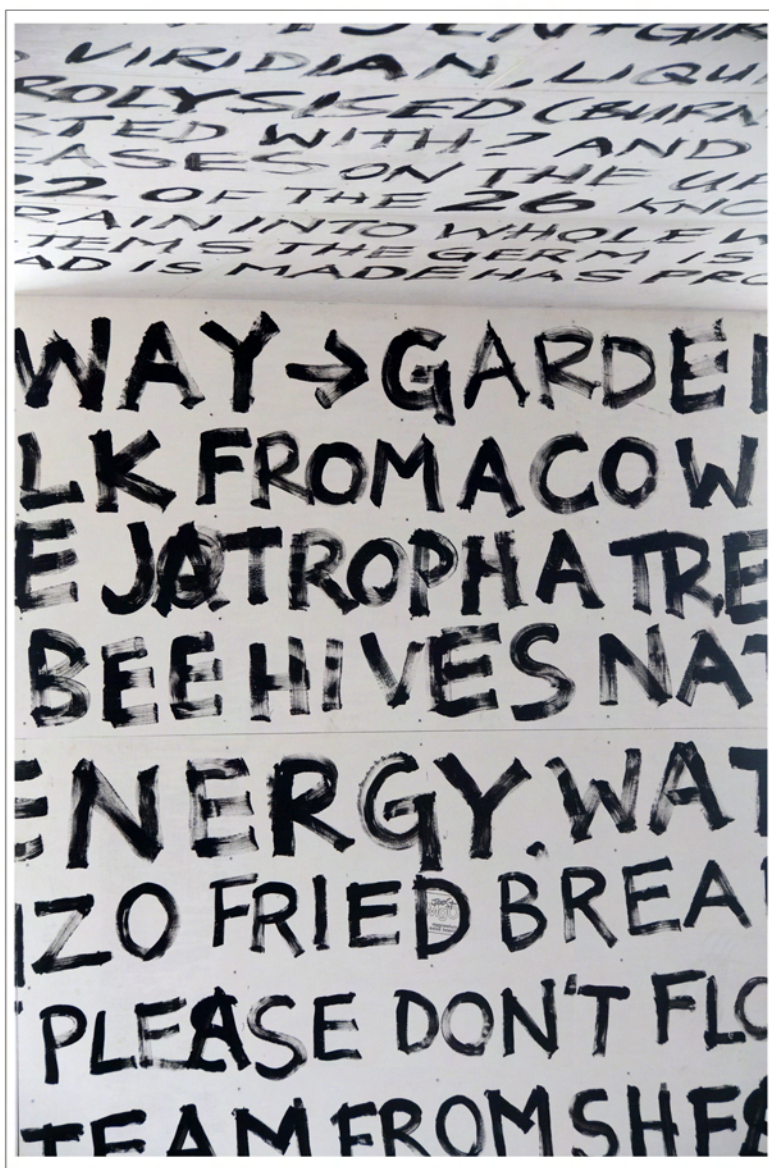 VIRIDIAN, LIQUI
ROLYSISED (BURN
RTED WITH? AND
EASES ON THE UP
22 OF THE 26 KNO
RAIN INTO WHOLE W
TEMS THE GERM IS
AD IS MADE HAS PRO
WAY → GARDE
LK FROM A COW
E JATROPHA TRE
BEE HIVES NAT
ENERGY. WAT
IZO FRIED BREA
PLEASE DON'T FLO
TEAM FROM SHE